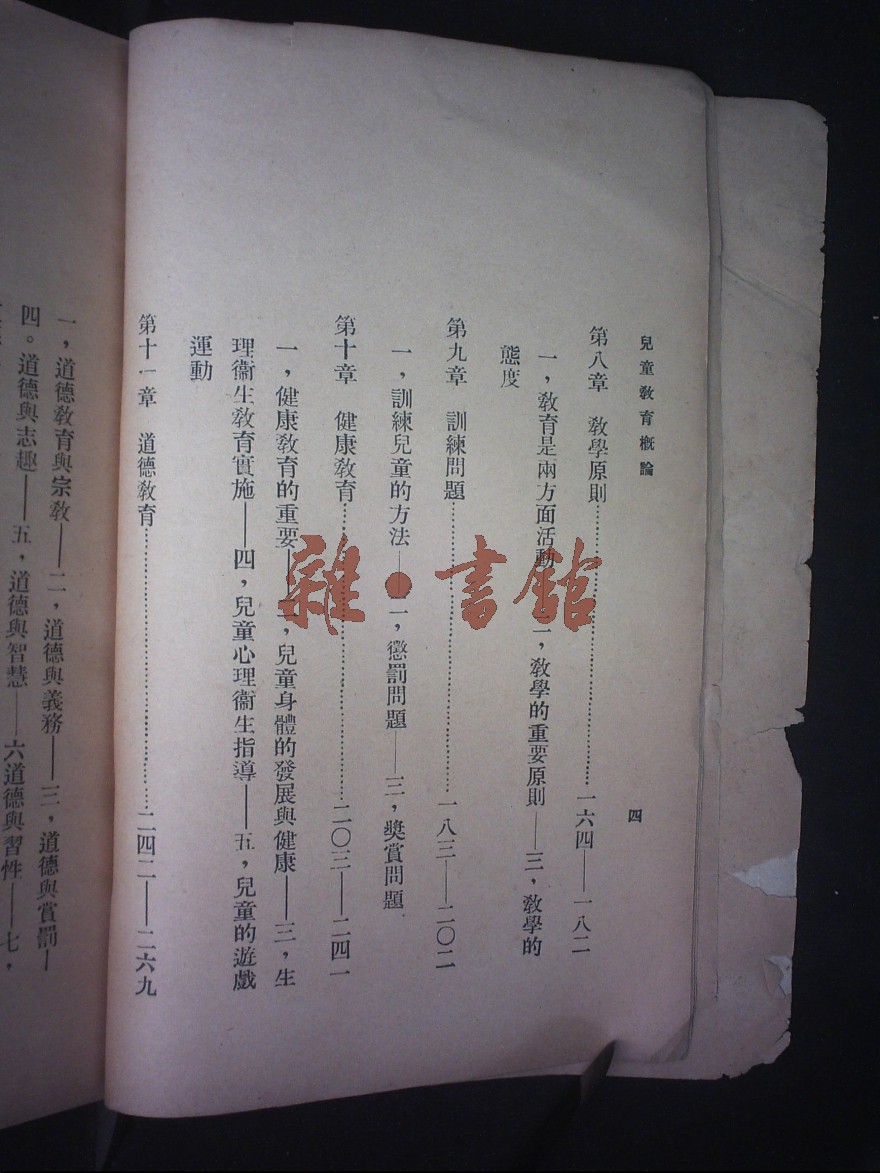 兒童教育概論
四
第八章　教學原則………一六四——一八二
一，教育是兩方面活動——二，教學的重要原則——三，教學的
態度
第九章　訓練問題………一八三——二〇二
一，訓練兒童的方法——二，懲罰問題——三，獎賞問題
第十章　健康教育………二〇三——二四一
一，健康教育的重要——二，兒童身體的發展與健康——三，生
理衞生教育實施——四，兒童心理衞生指導——五，兒童的遊戲
運動
第十一章　道德教育………二四二——二六九
一，道德教育與宗教——二，道德與義務——三，道德與賞罰—
四。道德與志趣——五，道德與智慧——六道德與習性——七，
雜·書館